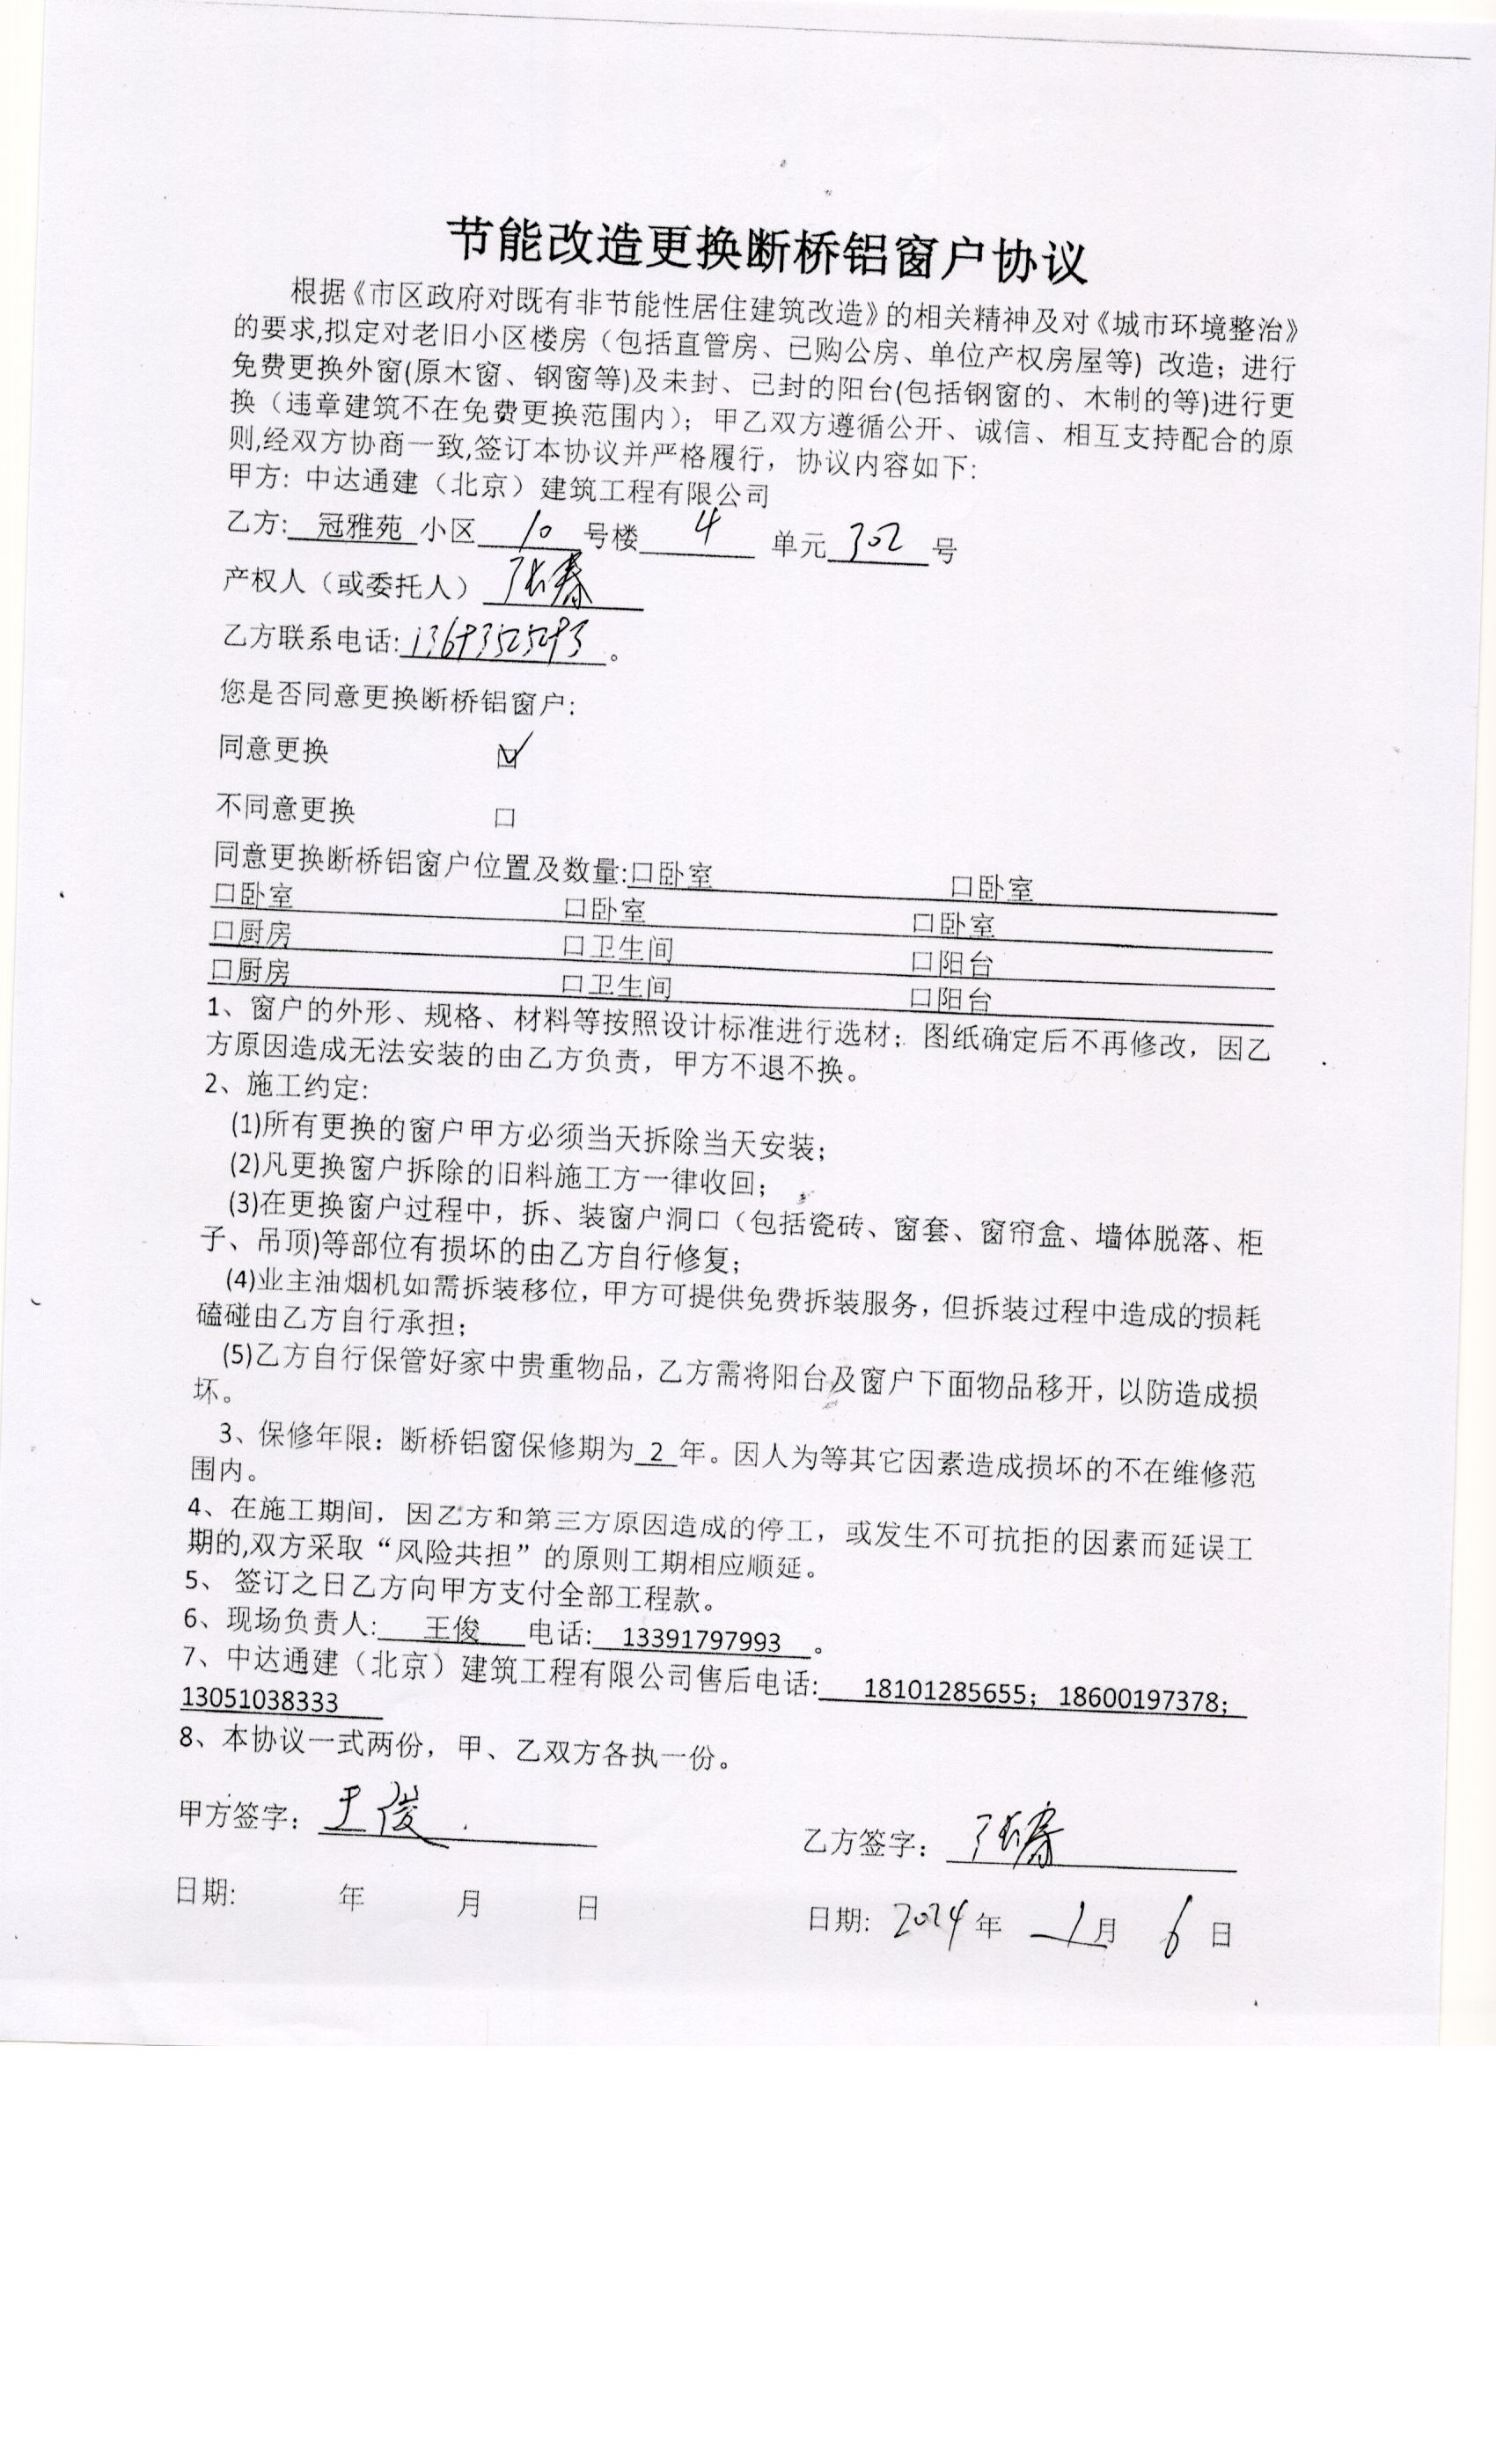 节能改造更换断桥铝窗户协议
根据《市区政府对既有非节能性居住建筑改造》的相关精神及对《城市环境整治》
的要求,拟定对老旧小区楼房（包括直管房、已购公房、单位产权房屋等) 改造；进行
免费更换外窗(原木窗、钢窗等)及未封、已封的阳台(包括钢窗的、木制的等)进行更
换（违章建筑不在免费更换范围内）；甲乙双方遵循公开、诚信、相互支持配合的原
则,经双方协商一致,签订本协议并严格履行，协议内容如下:
甲方: 中达通建（北京）建筑工程有限公司
乙方: 冠雅苑 小区 10 号楼 4 单元 302 号
产权人（或委托人） 张春
乙方联系电话: 。
您是否同意更换断桥铝窗户:
同意更换 ☑
不同意更换 口
同意更换断桥铝窗户位置及数量:口卧室 口卧室
口卧室 口卧室 口卧室
口厨房 口卫生间 口阳台
口厨房 口卫生间 口阳台
1、窗户的外形、规格、材料等按照设计标准进行选材；图纸确定后不再修改，因乙
方原因造成无法安装的由乙方负责，甲方不退不换。
2、施工约定:
(1)所有更换的窗户甲方必须当天拆除当天安装;
(2)凡更换窗户拆除的旧料施工方一律收回;
(3)在更换窗户过程中，拆、装窗户洞口（包括瓷砖、窗套、窗帘盒、墙体脱落、柜
子、吊顶)等部位有损坏的由乙方自行修复;
(4)业主油烟机如需拆装移位，甲方可提供免费拆装服务，但拆装过程中造成的损耗
磕碰由乙方自行承担;
(5)乙方自行保管好家中贵重物品，乙方需将阳台及窗户下面物品移开，以防造成损
坏。
3、保修年限：断桥铝窗保修期为 2 年。因人为等其它因素造成损坏的不在维修范
围内。
4、在施工期间，因乙方和第三方原因造成的停工，或发生不可抗拒的因素而延误工
期的,双方采取“风险共担”的原则工期相应顺延。
5、 签订之日乙方向甲方支付全部工程款。
6、现场负责人: 王俊 电话: 13391797993 。
7、中达通建（北京）建筑工程有限公司售后电话: 18101285655；18600197378；
13051038333
8、本协议一式两份，甲、乙双方各执一份。
甲方签字： 王俊
乙方签字： 张春
日期: 年 月 日
日期: 2024年 1月 6日